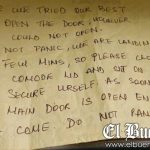 WE TRIED OUR BEST
OPEN THE DOOR, HOWEVER
COULD NOT OPEN.
NOT PANIC, WE ARE LANDING
FEW MINS, SO PLEASE CLOSE
COMODE LID AND SIT ON
SECURE URSELF. AS SOON
MAIN DOOR IS OPEN, EN
COME. DO NOT PAN
El B
www.elbuen